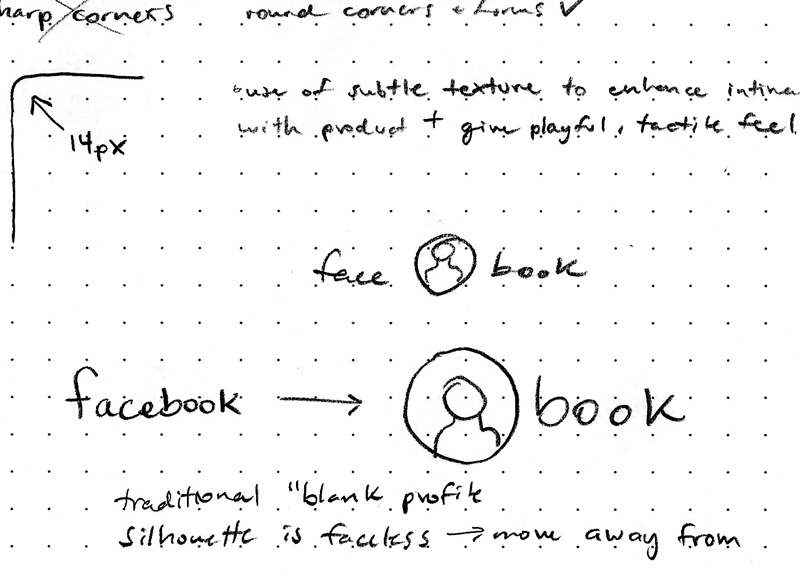 harp corners round corners + forms ✓
use of subtle texture to enhance intima
with product + give playful, tactile feel
14px
face book
facebook → book
traditional "blank profile
silhouette is faceless → move away from